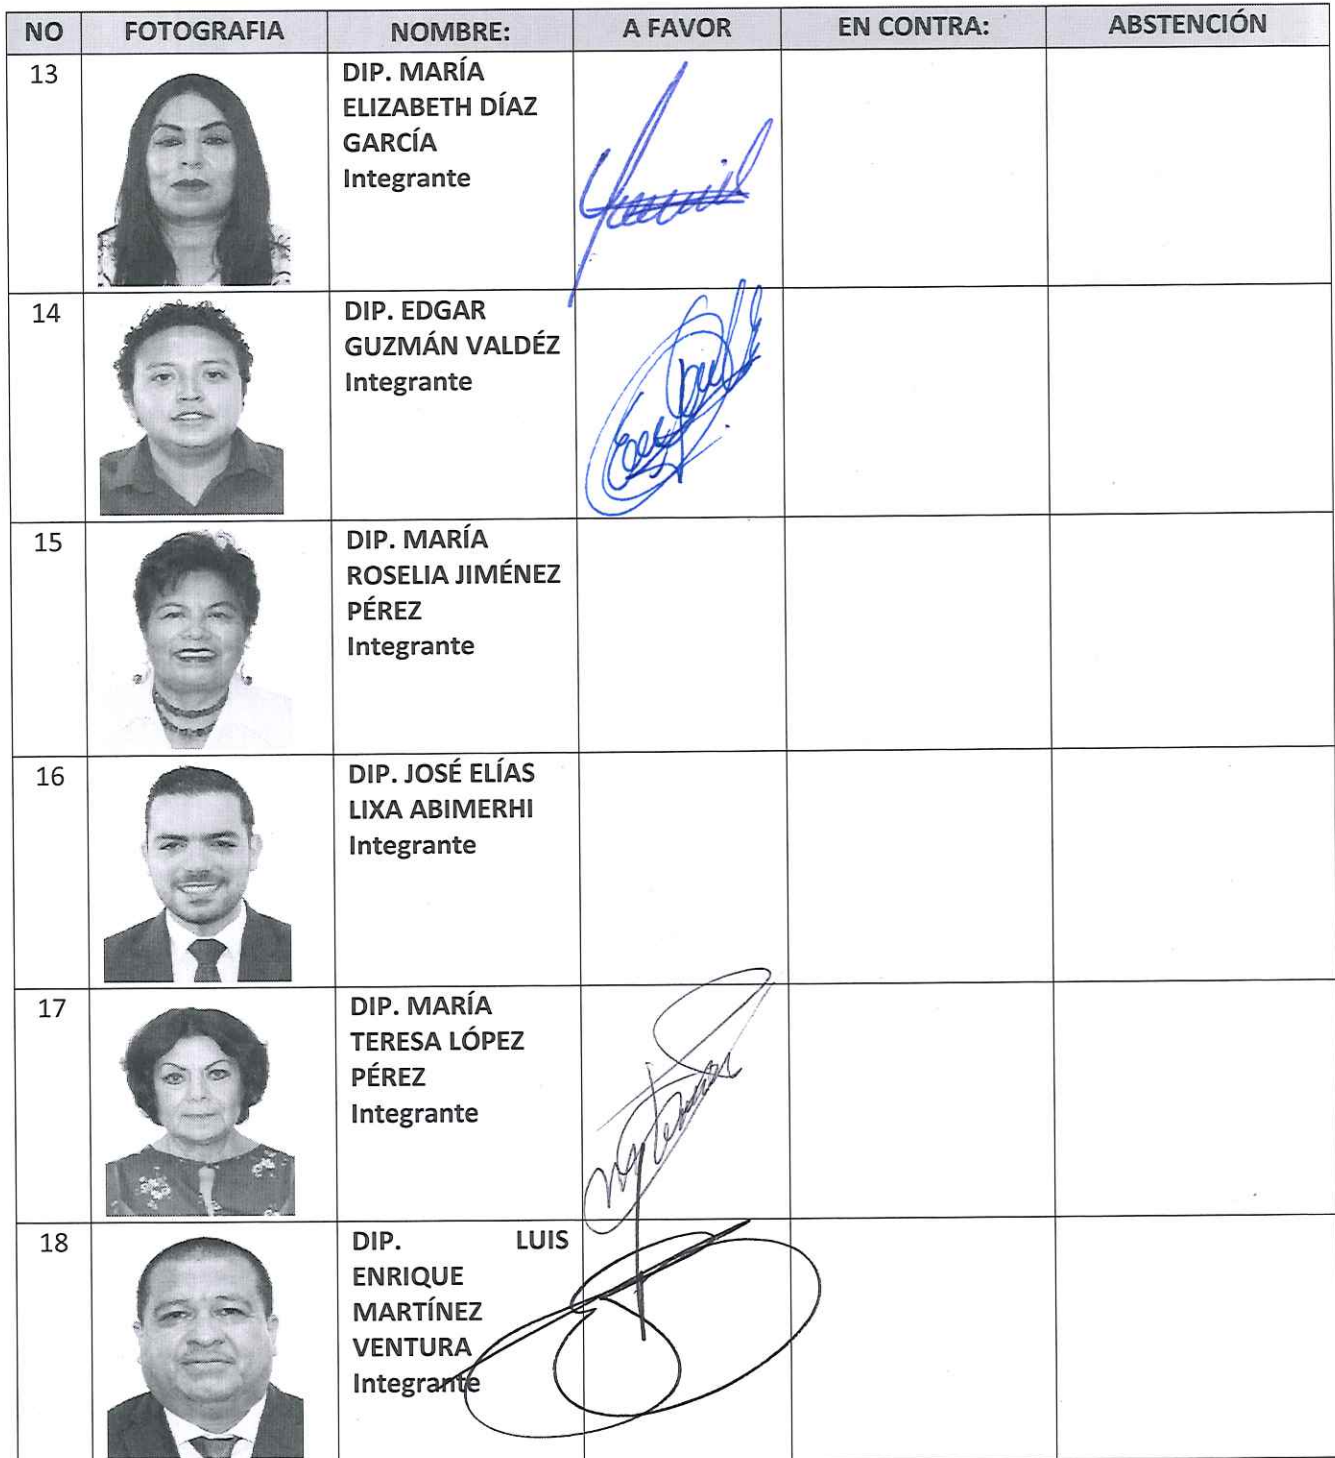 NO FOTOGRAFIA NOMBRE: A FAVOR EN CONTRA: ABSTENCIÓN
13 DIP. MARÍA
ELIZABETH DÍAZ
GARCÍA
Integrante
14 DIP. EDGAR
GUZMÁN VALDÉZ
Integrante
15 DIP. MARÍA
ROSELIA JIMÉNEZ
PÉREZ
Integrante
16 DIP. JOSÉ ELÍAS
LIXA ABIMERHI
Integrante
17 DIP. MARÍA
TERESA LÓPEZ
PÉREZ
Integrante
18 DIP. LUIS
ENRIQUE
MARTÍNEZ
VENTURA
Integrante